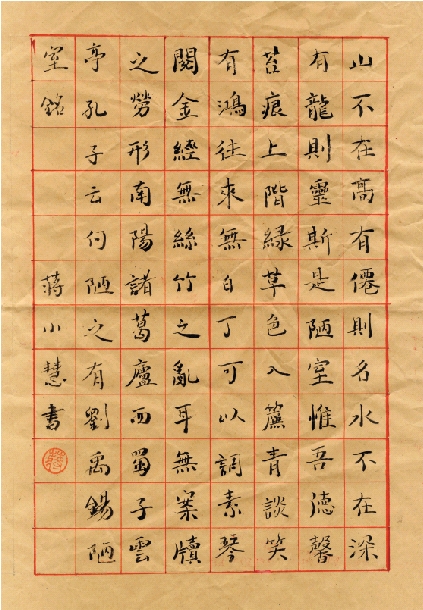 山不在髙有僊則名水不在深
有龍則靈斯是陋室惟吾德馨
苔痕上階緑草色入簾青談笑
有鴻往來無白丁可以調素琴
閱金經無絲竹之亂耳無案牘
之勞形南陽諸葛廬西蜀子雲
亭孔子云何陋之有劉禹錫陋
室銘 蔣小慧書